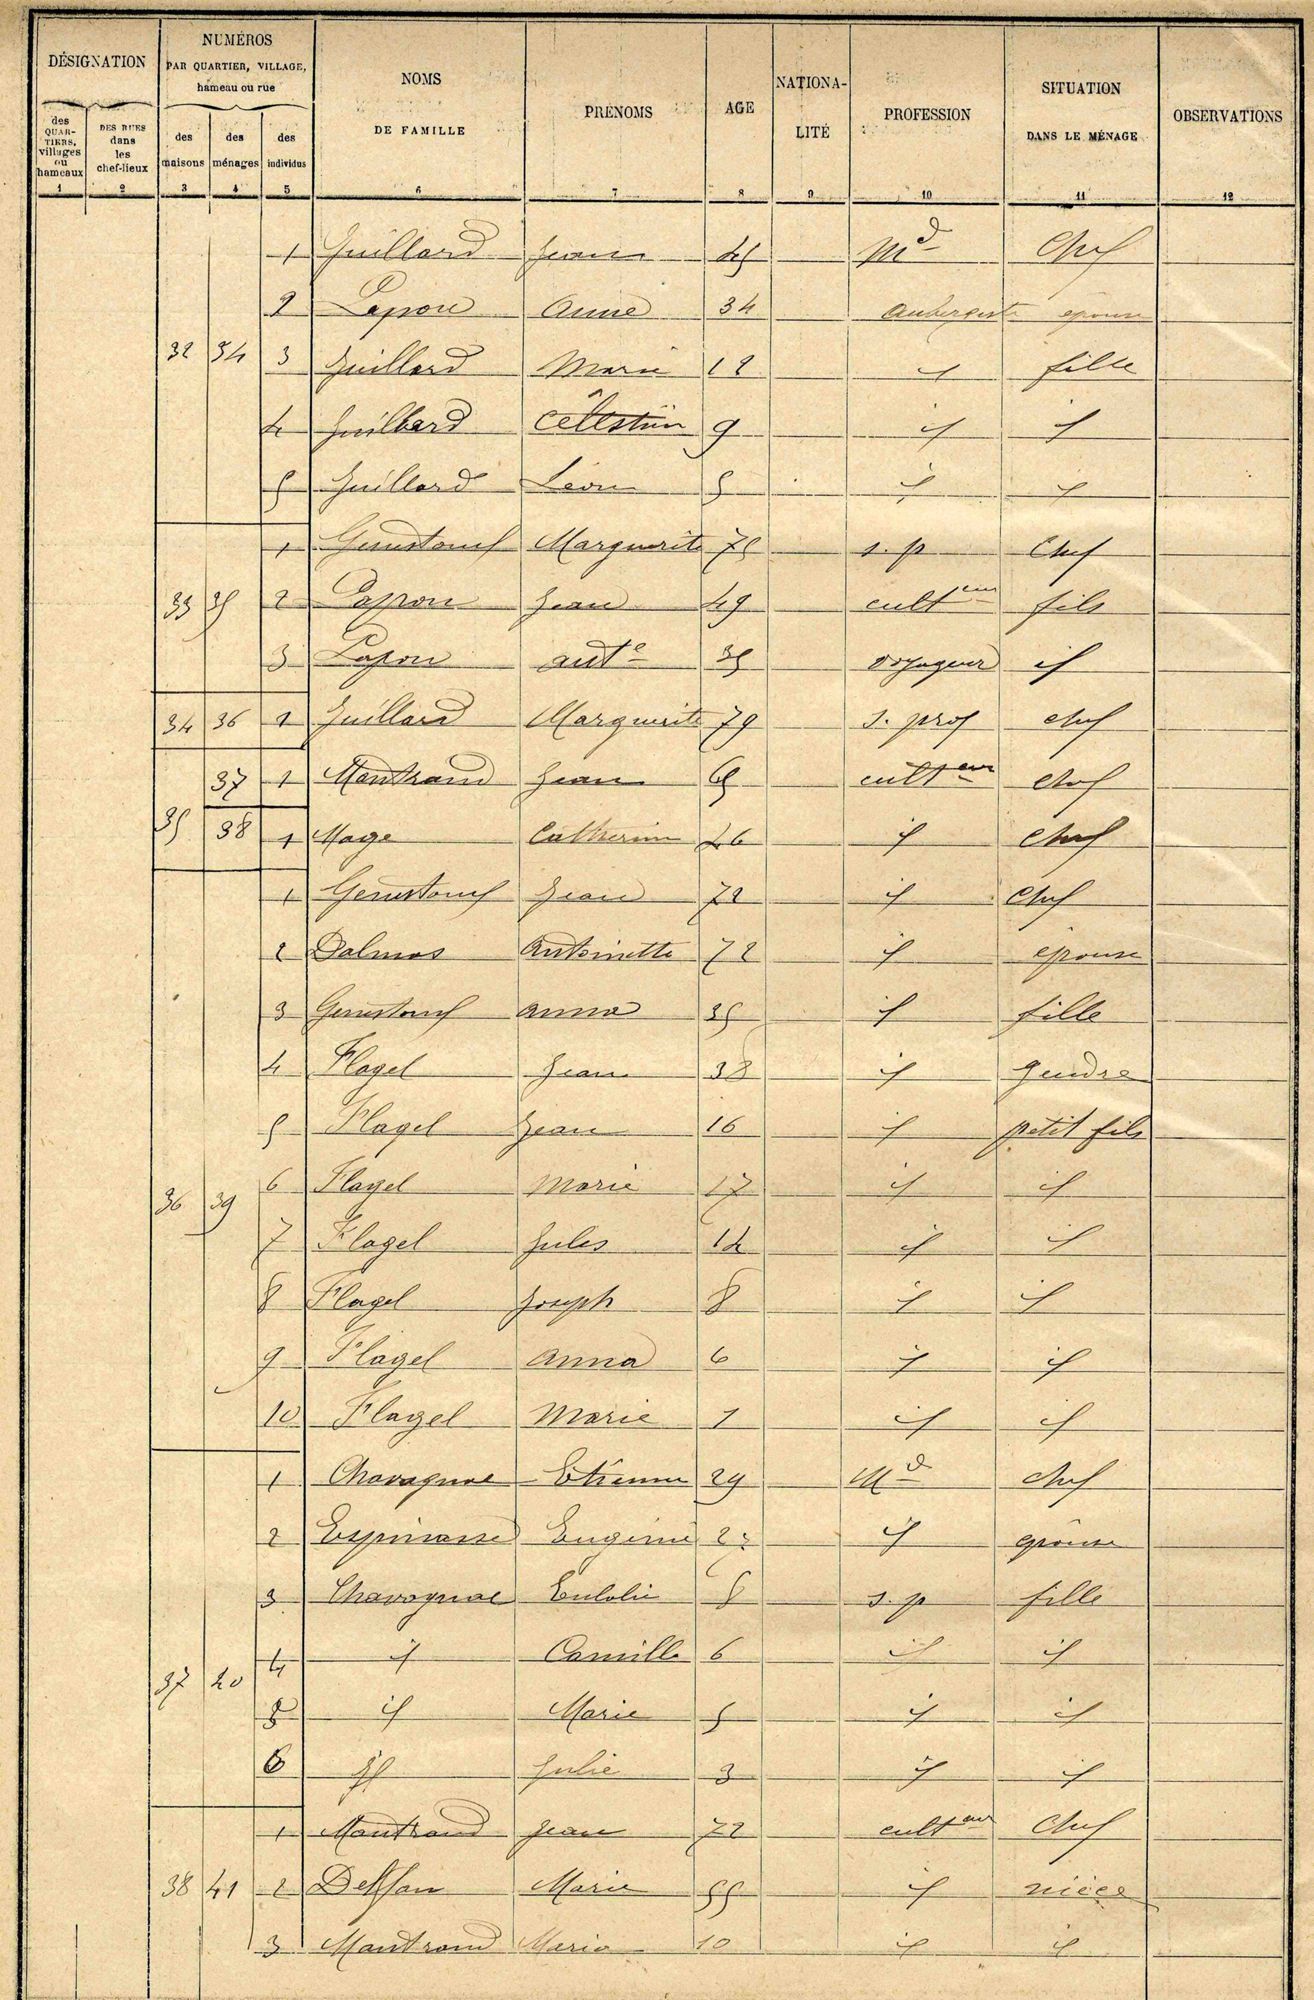 DÉSIGNATION
NUMÉROS
PAR QUARTIER, VILLAGE,
hameau ou rue
NOMS
DE FAMILLE
PRÉNOMS
AGE
NATIONA-
LITÉ
PROFESSION
SITUATION
DANS LE MÉNAGE
OBSERVATIONS
des
QUAR-
TIERS,
villages
ou
hameaux
DES RUES
dans
les
chef-lieux
des
maisons
des
ménages
des
individus
1 2 3 4 5 6 7 8 9 10 11 12
1 Guillard Jean 45 Md Chef
2 Papon Anne 34 aubergiste épouse
32 34 3 Guillard Marie 12 id fille
4 Guillard Célestin 9 id id
5 Guillard Léon 5 id id
1 Genestouf Marguerite 75 s. p Chef
33 35 2 Papon Jean 49 culteur fils
3 Papon ante 35 voyageur id
34 36 1 Guillard Marguerite 79 s. prof chef
37 1 Mantrand Jean 65 culteur chef
35 38 1 Mage Catherine 46 id chef
1 Genestouf Jean 72 id chef
2 Dalmas Antoinette 72 id épouse
3 Genestouf Anna 35 id fille
4 Flagel Jean 38 id gendre
5 Flagel Jean 16 id petit fils
36 39 6 Flagel Marie 17 id id
7 Flagel Jules 14 id id
8 Flagel Joseph 8 id id
9 Flagel Anna 6 id id
10 Flagel Marie 1 id id
1 Chavagnac Etienne 29 Md chef
2 Espinasse Eugénie id épouse
3 Chavagnac Eulalie 8 s. p fille
37 40 4 id Camille 6 id id
5 id Marie 5 id id
6 id Julie 3 id id
1 Mantrand Jean 72 culteur Chef
38 41 2 Marie 55 id nièce
3 Mantrand Maria 10 id id